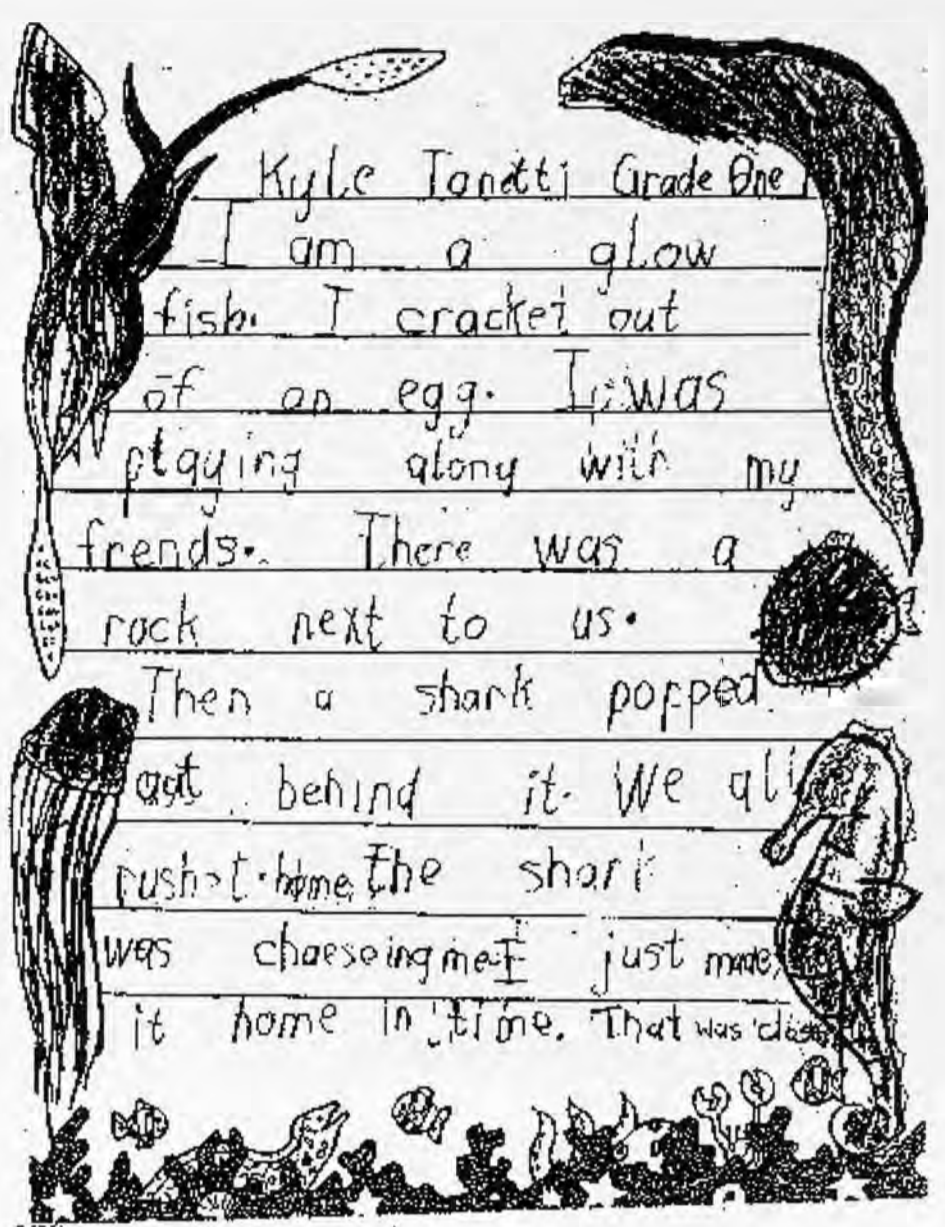 Kyle Tonetti Grade One
I am a glow
fish. I cracket out
of an egg. I was
playing along with my
frends. There was a
rock next to us.
Then a shark popped
out behind it. We all
rushet home. The shark
was chaeseing me. I just made
it home in time. That was close